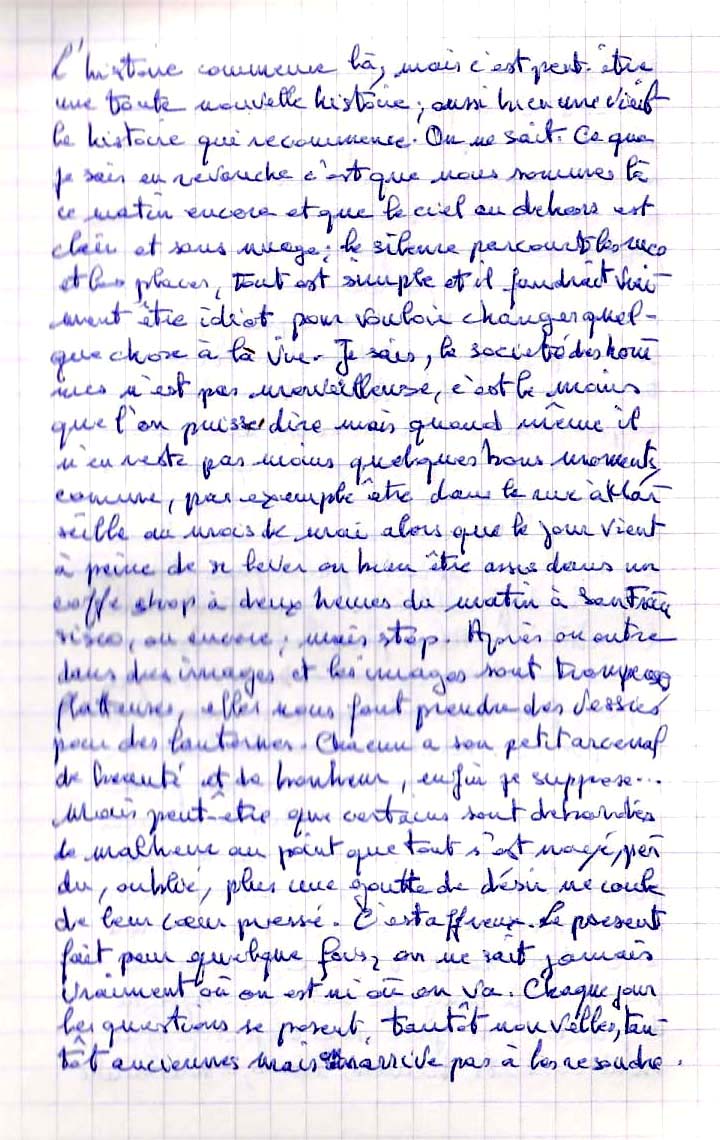 L'histoire commence là, mais c'est peut-être
une toute nouvelle histoire; aussi bien une vieil-
le histoire qui recommence. On ne sait. Ce que
je sais en revanche c'est que nous sommes là
ce matin encore et que le ciel au dehors est
clair et sans nuage; le silence parcourt les rues
et les places, tout est simple et il faudrait vrai-
ment être idiot pour vouloir changer quel-
que chose à la vie. Je sais, la société des hom
mes n'est pas merveilleuse, c'est le moins
que l'on puisse dire mais quand même il
n'en reste pas moins quelques bons moments,
comme, par exemple être dans la rue à Mar
seille au mois de mai alors que le jour vient
à peine de se lever ou bien être assis dans un
coffe shop à deux heures du matin à San Fran
sisco, ou encore; mais stop. Après on entre
dans des images et les images sont trompeuses
flatteuses, elles nous font prendre des vessies
pour des lanternes. Chacun a son petit arcenal
de beauté et de bonheur, enfin je suppose...
Mais peut-être que certains sont débordés
de malheur au point que tout s'est noyé, per
du, oublié, plus une goutte de désir ne coule
de leur cœur pressé. C'est affreux. Le présent
fait peur quelque fois, on ne sait jamais
vraiment où on est ni où on va. Chaque jour
les questions se posent, tantôt nouvelles, tan-
tôt anciennes mais on n'arrive pas à les resoudre.